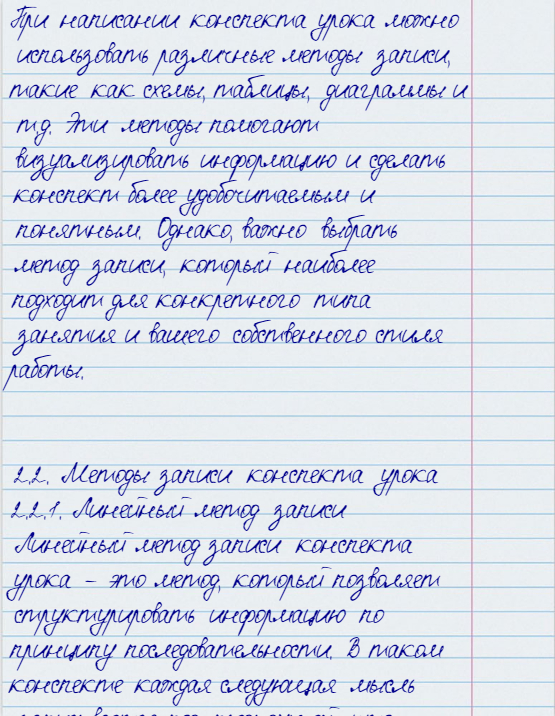 При написании конспекта урока можно
использовать различные методы записи,
такие как схемы, таблицы, диаграммы и
т.д. Эти методы помогают
визуализировать информацию и сделать
конспект более удобочитаемым и
понятным. Однако, важно выбрать
метод записи, который наиболее
подходит для конкретного типа
занятия и вашего собственного стиля
работы.
2.2. Методы записи конспекта урока
2.2.1. Линейный метод записи
Линейный метод записи конспекта
урока – это метод, который позволяет
структурировать информацию по
принципу последовательности. В таком
конспекте каждая следующая мысль